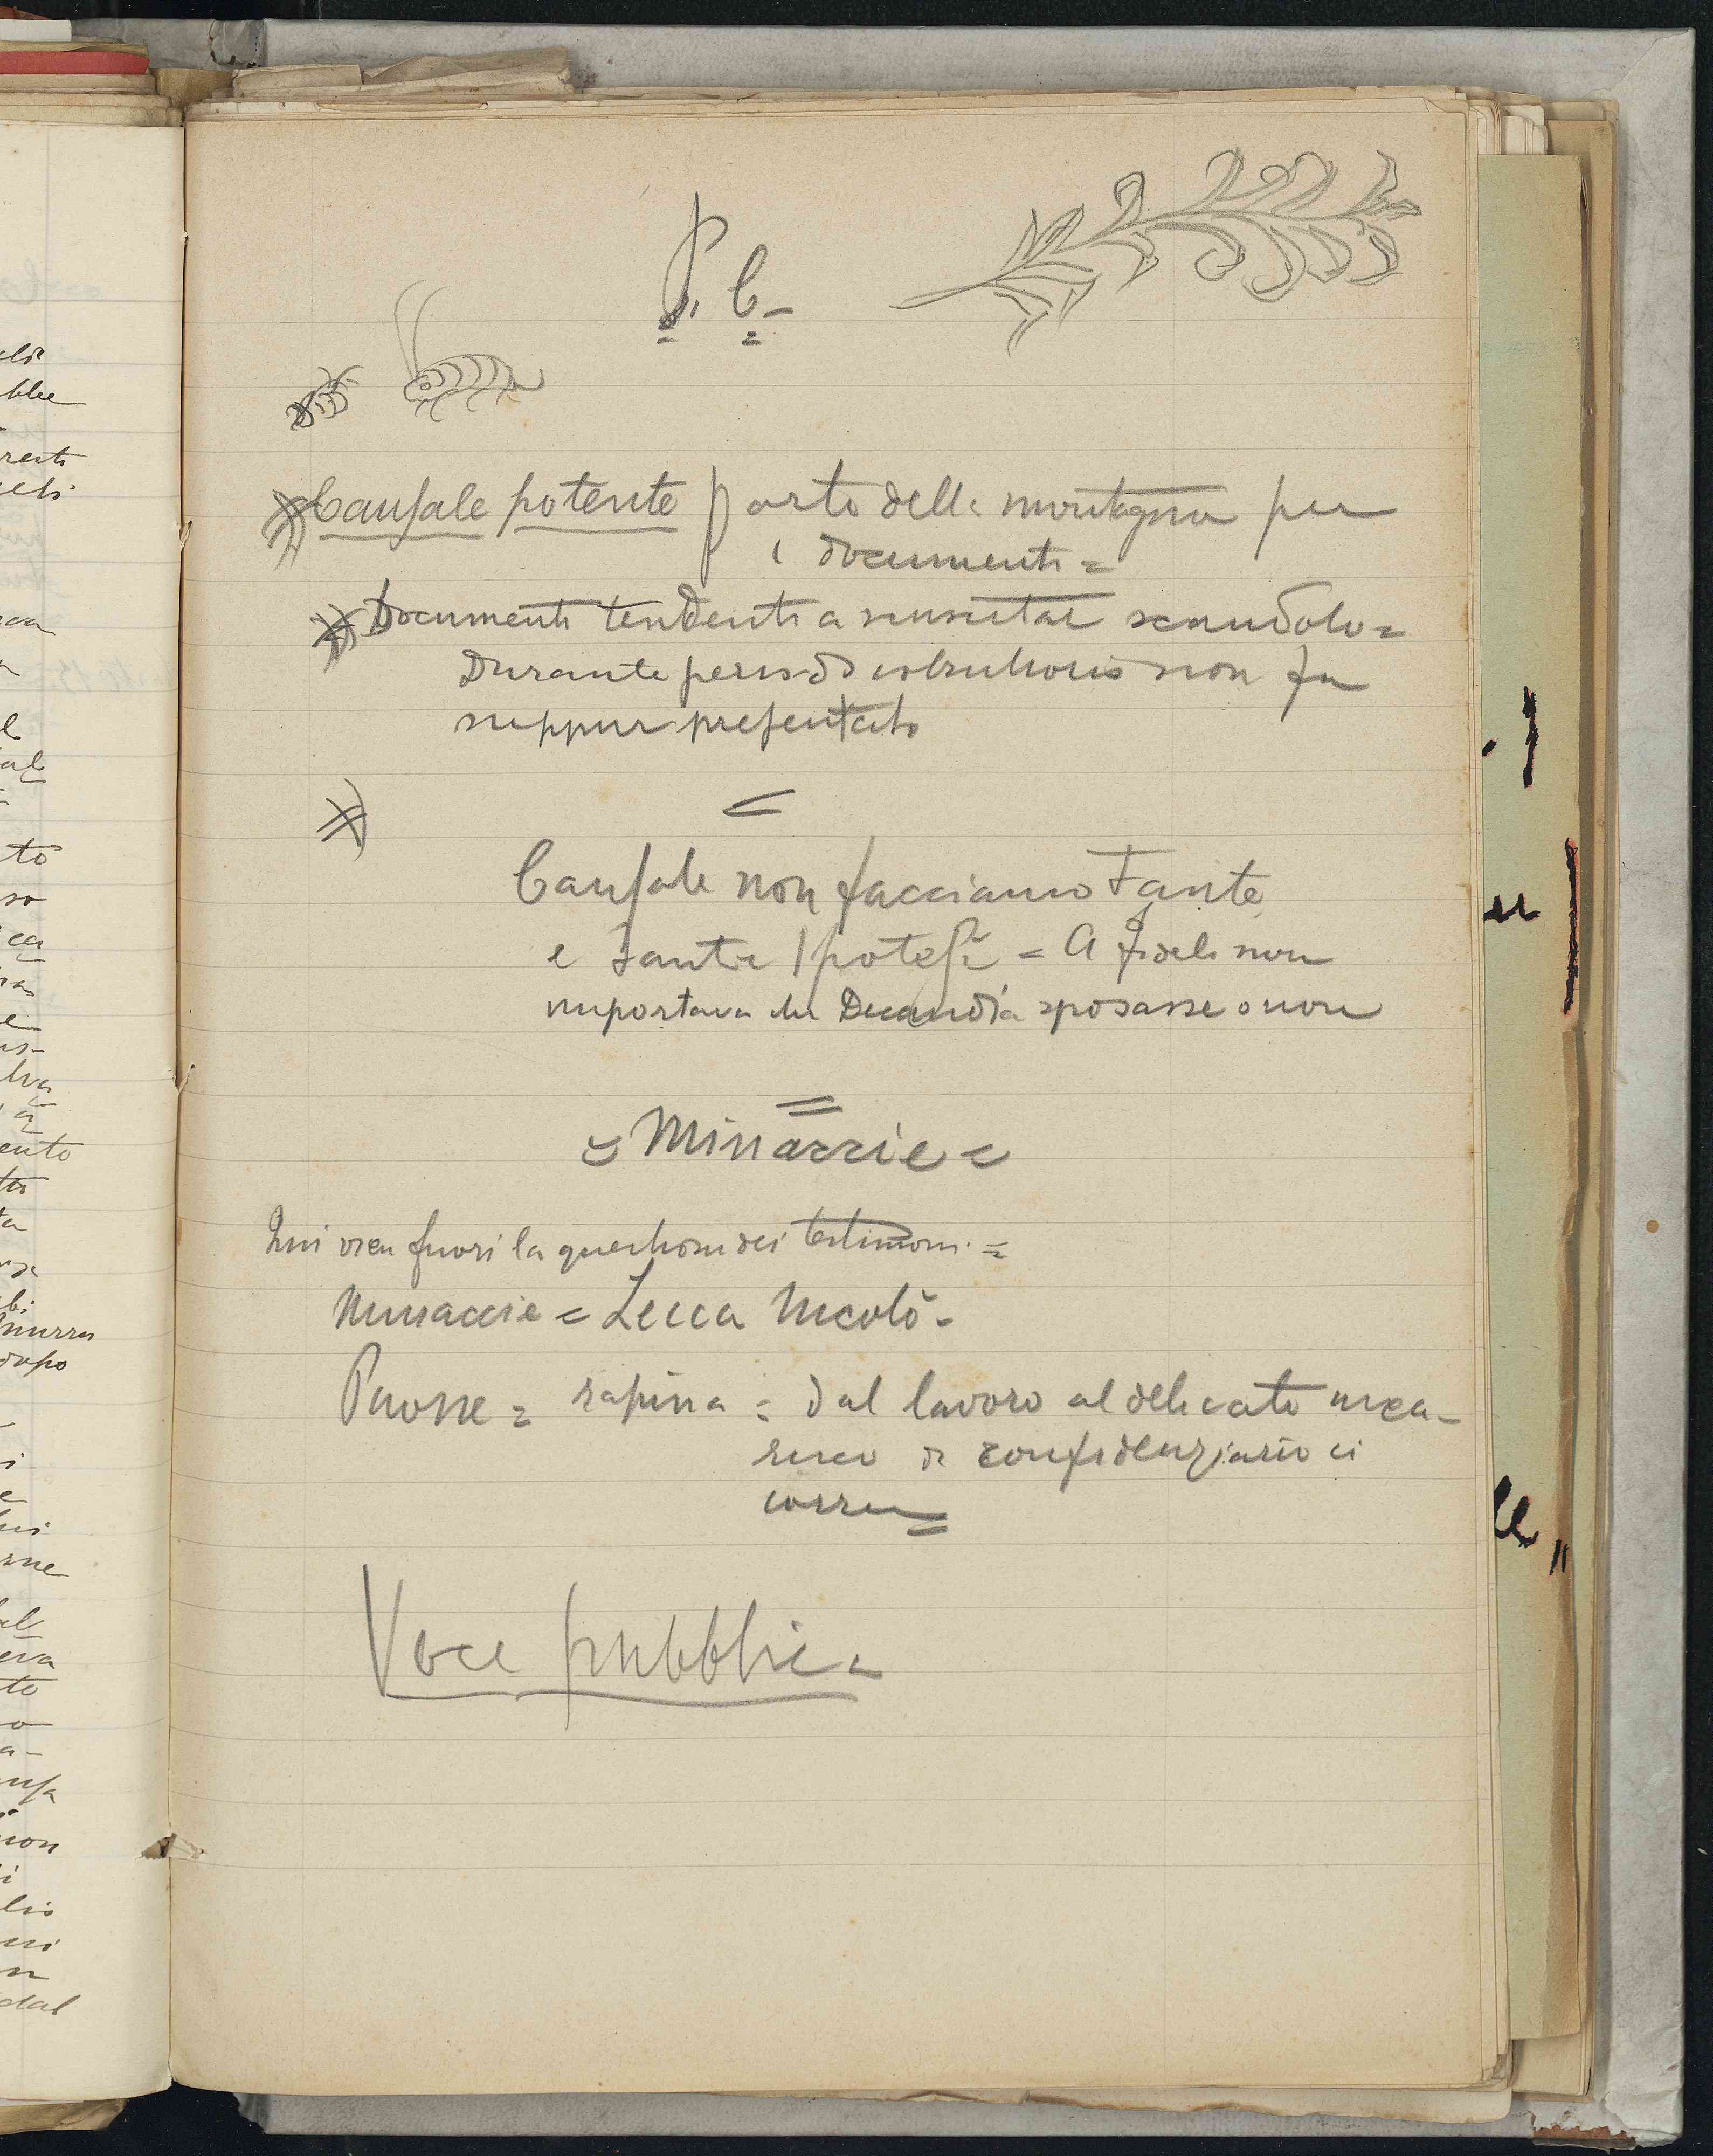 P. C.
Causale potente parto della montagna per
i documenti =
Documenti tendenti a suscitar scandolo =
Durante periodo istruttorio non fu
neppur presentato
=
Causale non facciamo tante
e tante Ipotesi = A Fideli non
importava che Decandia sposasse o non
=
= Minaccie =
Qui vien fuori la question dei testimoni =
Minaccie = Lecca Nicolò -
Pirosse = rapina = dal lavoro al delicato inca-
rico di confidenziario ci
corre =
Voce pubblica
eli
blee
resti
eli
to
so
ca
e
us-
tiva
a
ento
ta
murru
dopo
i
e
erne
eva
to
o
a-
ausa
non
i
lio
dal